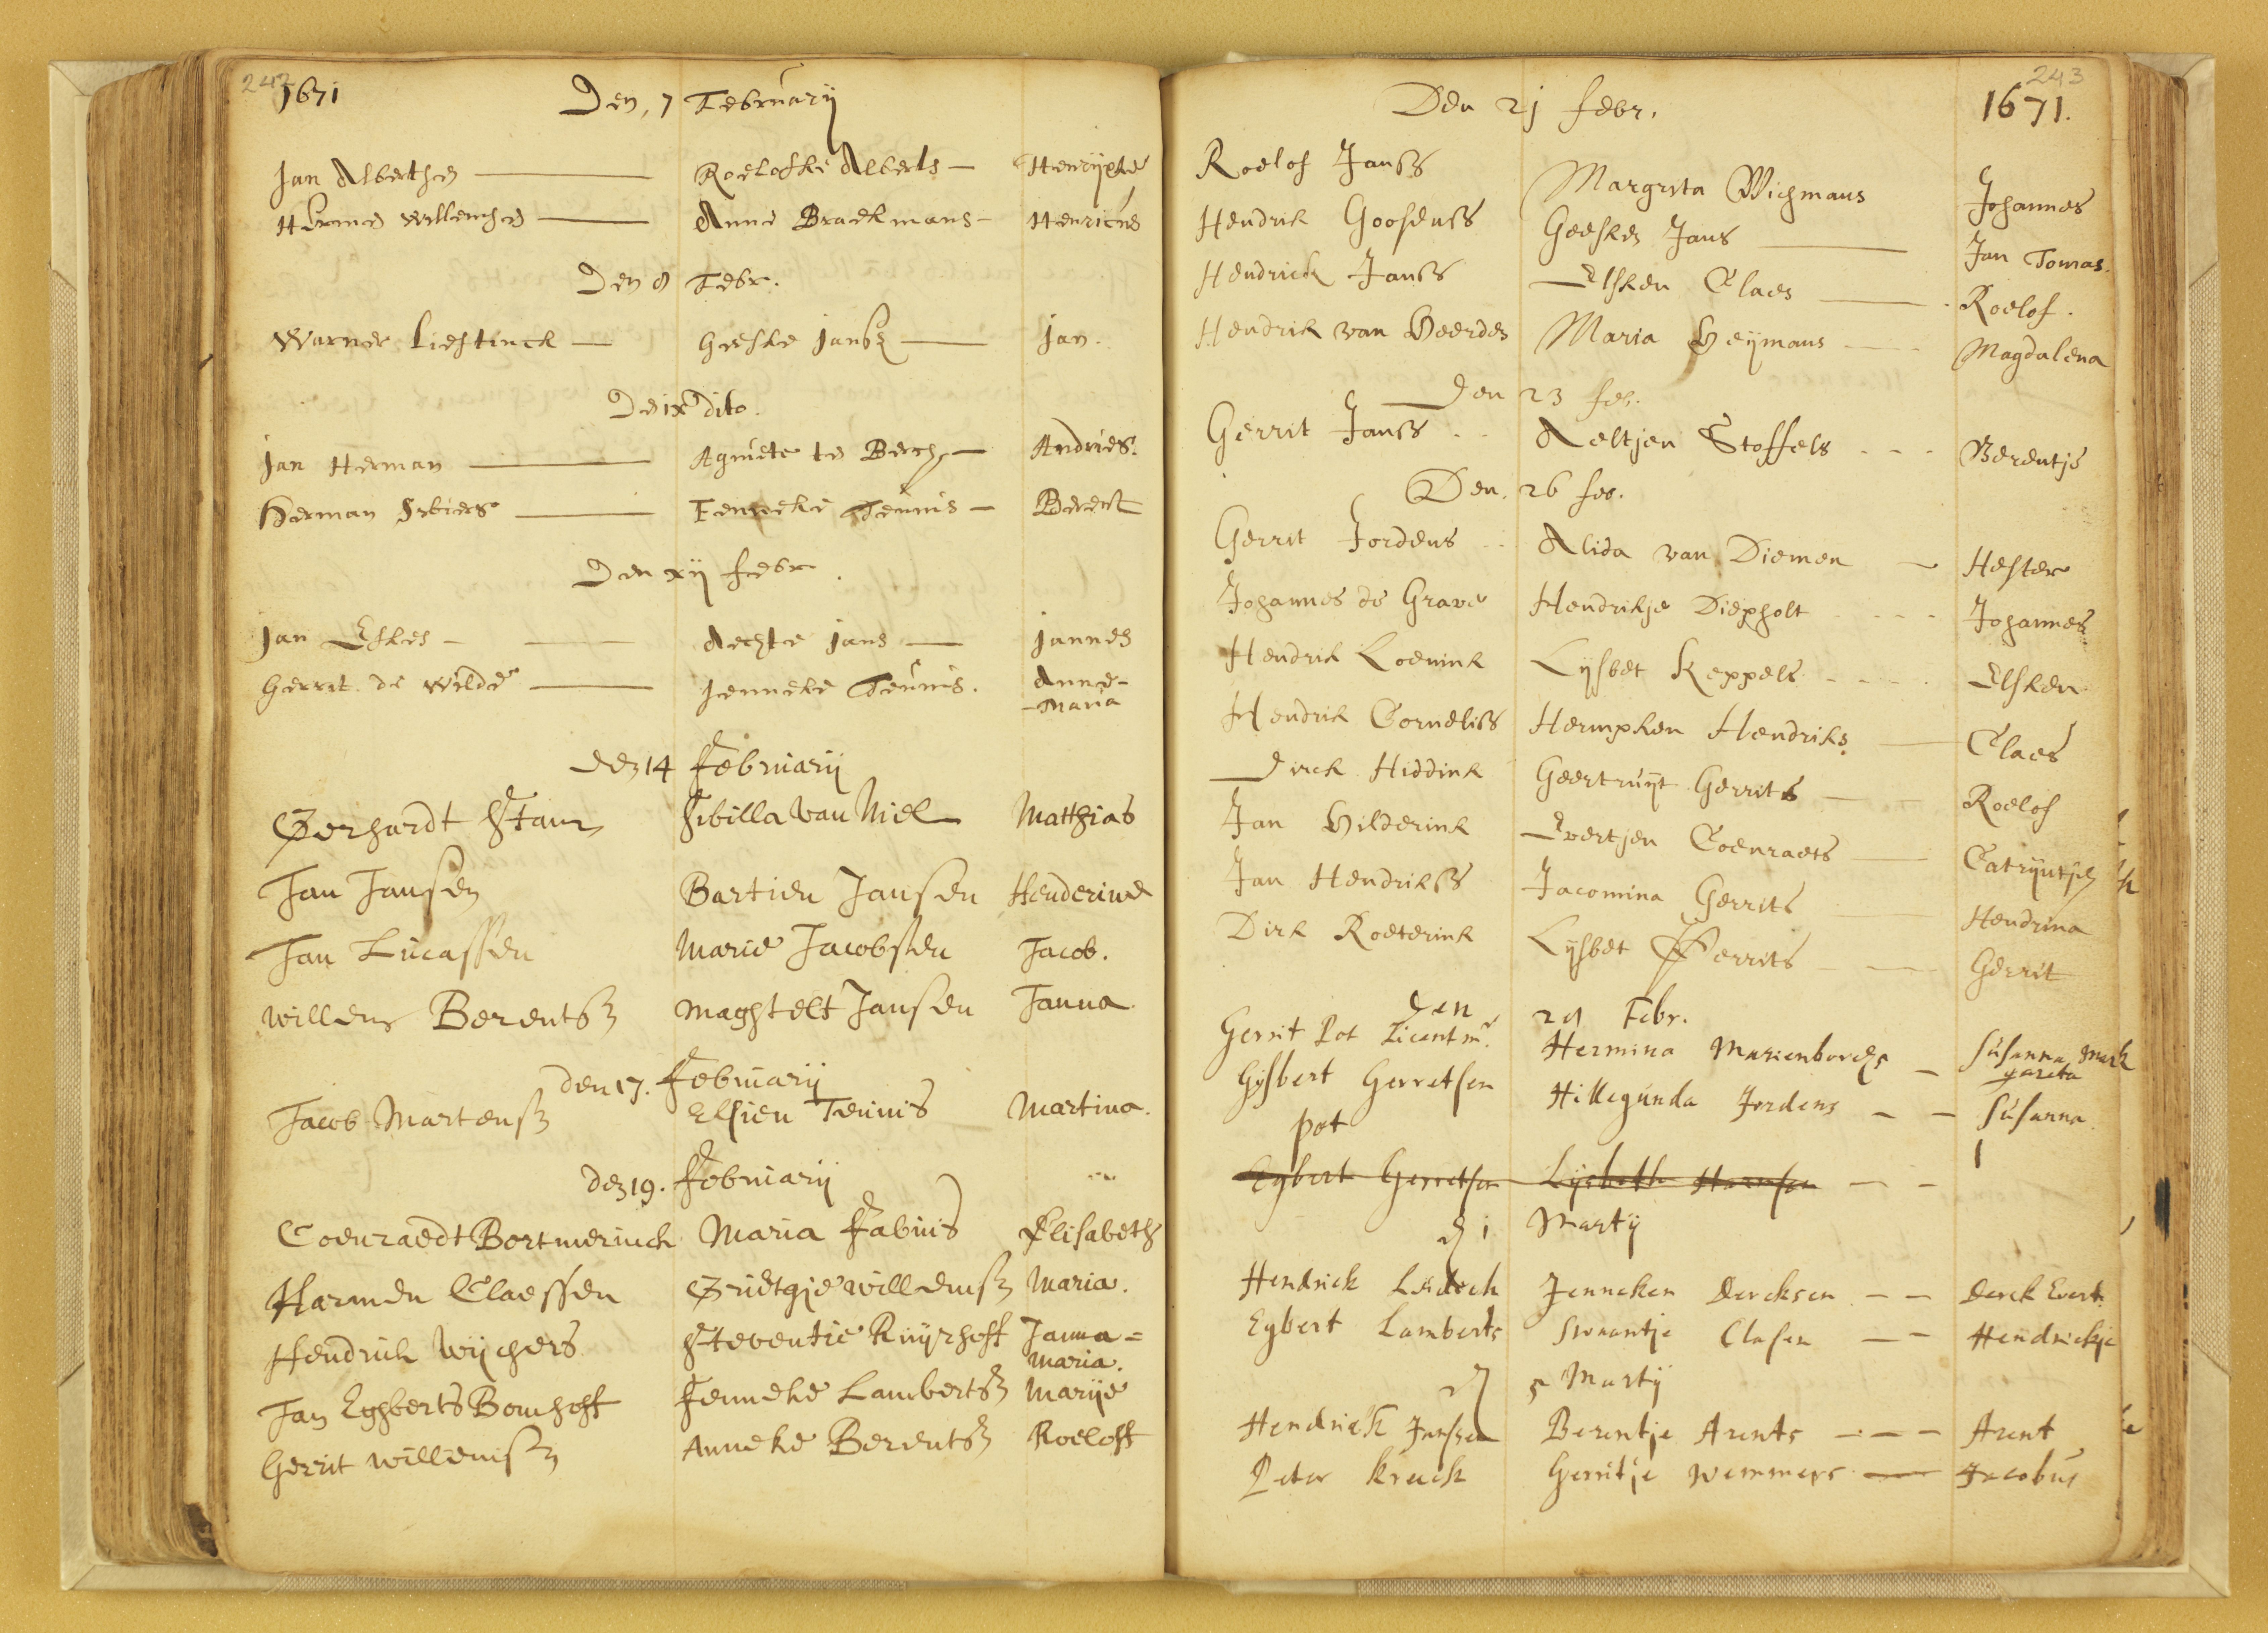 242
1671 Den, 7 Februarij
Jan Alberthen Roelofke Alberts Henrijxke
Herme Willemsen Anne Braekmans Henricus
Den 8 Febr.
Warner Liestinck Geeske Jansz Jan.
Den ix dito.
Jan Herman Agniete te Berch Andries.
Herman Enneke Teunis Berent
Den xij Febr.
Jan Eskes Aechte Jans Jannes
Gerrit de Wilde Jenneke Teunis. Anne-
-Maria
den 14 Februarij
Gerhardt Stam Sibilla van Niel Matthias
Jan Jansen Bartien Jansen Henderine
Jan Lucassen Marie Jacobsen Jacob.
Willem Berentsz Maghtelt Jansen Janna
den 17. Februarij
Jacob Martensz Elsien Teunis Martina.
den 19. Februarij
Coenraedt Bortmerinck Maria Fabius Elisabeth
Harmen Claessen Grietgje Willemsz Maria.
Hendrick Wijchers Steventie Ruijrhoff Janna=
Maria.
Jan Eghberts Bomhoff Jenneke Lambertsz Marije
Gerrit Willemsz Anneke Berentsz Roeloff
243
Den 21 Febr. 1671.
Roelof Janss Margrita Wichmans Johannes
Hendrik Goosenss Geesken Jans Jan Tomas.
Hendrick Janss Elsken Claes Roelof.
Hendrik van Heerden Maria Heijmans Magdalena
Den 23 feb.
Gerrit Janss Aeltjen Stoffels Berentje
Den. 26 feb.
Gerrit Jordens Alida van Diemen Hester
Johannes de Grave Hendrikje Diepholt Johannes
Hendrik Loenink Lijsbet Keppels Elsken
Hendrik Corneliss Hermpken Hendriks Claes
Dirck Hiddink Geertruijt Gerrits Roelof
Jan Hilderink Evertjen Coenraets Catrijntjen
Jan Hendrikss Jacomina Gerrits Hendrina
Dirk Roeterink Lijsbet Gerrits Gerrit
Den 28 Febr.
Gerrit Pot Licentmr. Hermina Marienborch Susanna Mar
gareta
Gijsbert Gerretsen Hillegunda Jordens Susanna
pot
Egbert Gerretsen Lijsbeth Harmsen
d 1 Martij
Hendrick Jenneken Dercksen Derck Evert.
Egbert Lamberts Swaantje Clasen Hendrickje
d 5 Martij
Hendrick Jansen Berentje Arents Arent
Peter Kruck Gerritje Wemmers Jacobus